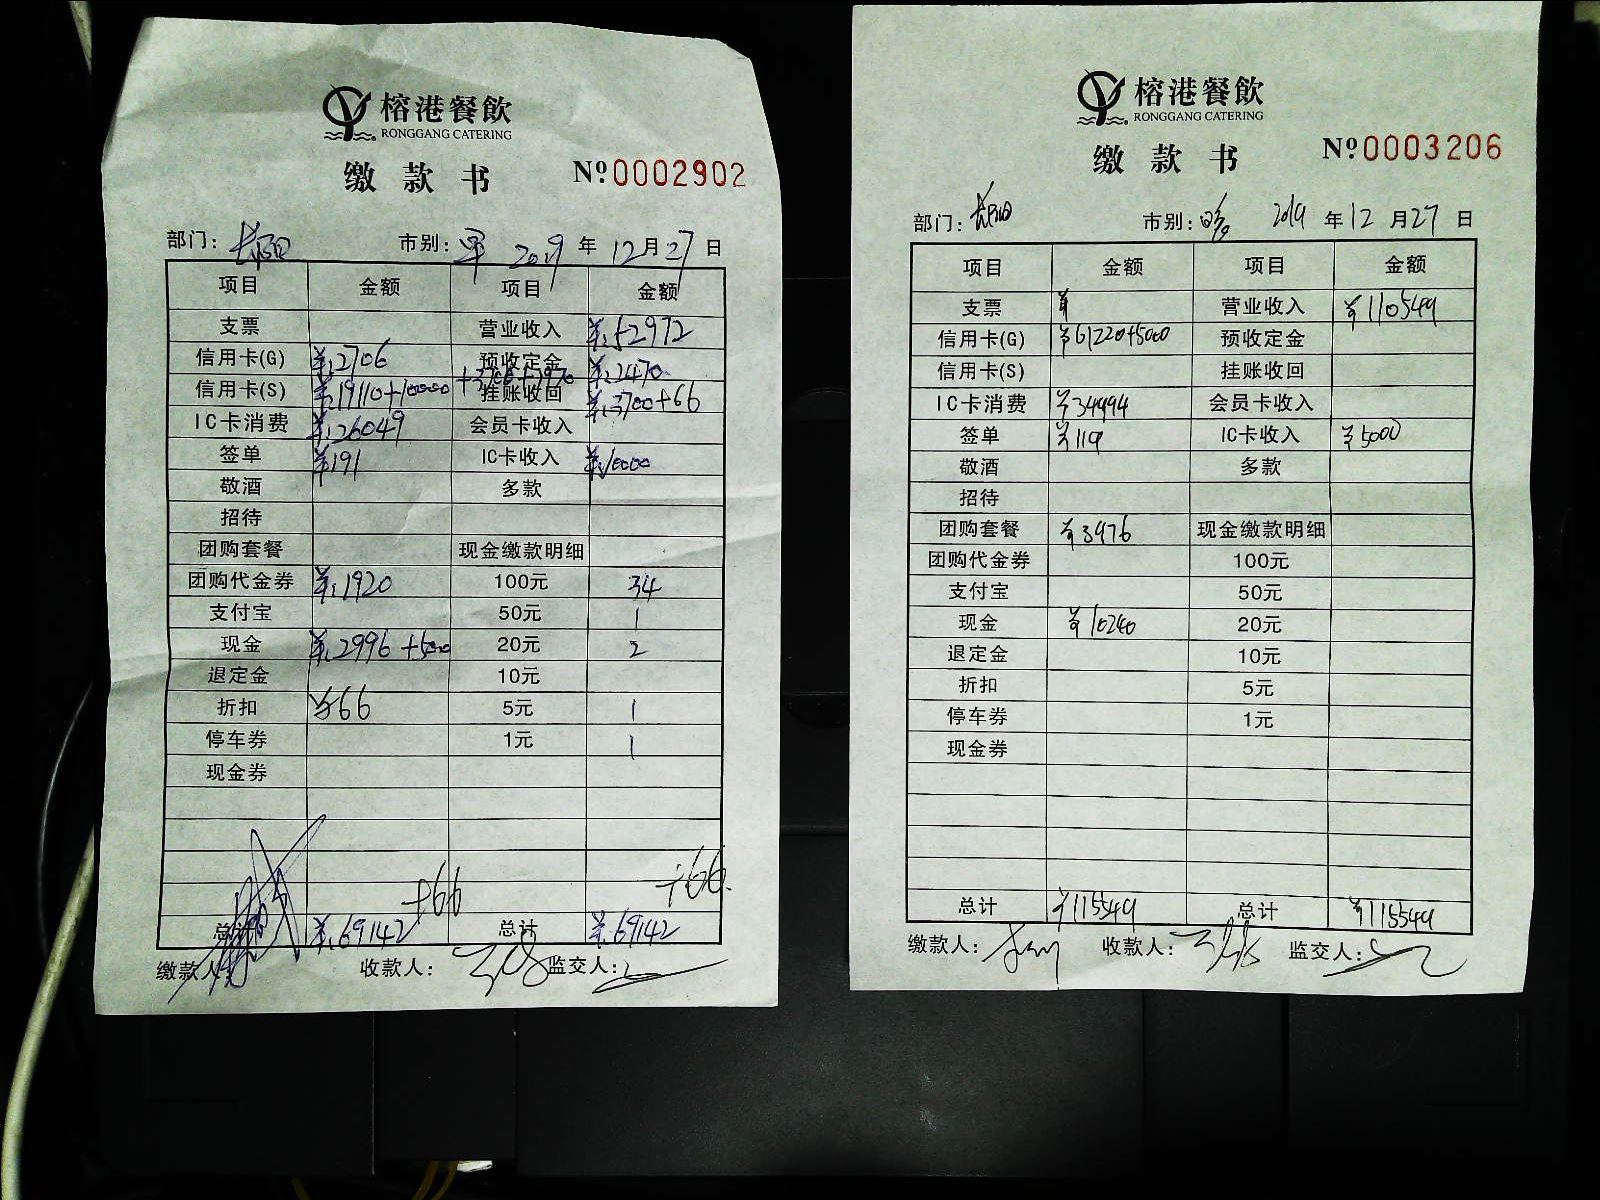 榕港餐飲
RONGGANG CATERING
缴款书 Nº0002902
部门: 长阳 市别: 早 2019年12月27日
项目 金额 项目 金额
支票 营业收入 ¥:52972
信用卡(G) ¥:2706 预收定金 ¥:2470
信用卡(S) ¥:19110+10000 挂账收回 ¥:3700+66
IC卡消费 ¥:26049 会员卡收入
签单 ¥191 IC卡收入 ¥:10000
敬酒 多款
招待
团购套餐 现金缴款明细
团购代金券 ¥:1920 100元 34
支付宝 50元 1
现金 ¥:2996+500 20元 2
退定金 10元
折扣 ¥66 5元 1
停车券 1元 1
现金券
+66 +66
总计 ¥:69142 总计 ¥:69142
缴款人: 收款人: 监交人:
榕港餐飲
RONGGANG CATERING
缴款书 Nº0003206
部门: 长阳 市别: 晚 2019年12月27日
项目 金额 项目 金额
支票 ¥ 营业收入 ¥110549
信用卡(G) ¥61220+5000 预收定金
信用卡(S) 挂账收回
IC卡消费 ¥34994 会员卡收入
签单 ¥119 IC卡收入 ¥5000
敬酒 多款
招待
团购套餐 ¥3976 现金缴款明细
团购代金券 100元
支付宝 50元
现金 ¥10240 20元
退定金 10元
折扣 5元
停车券 1元
现金券
总计 ¥115549 总计 ¥115549
缴款人: 收款人: 监交人: